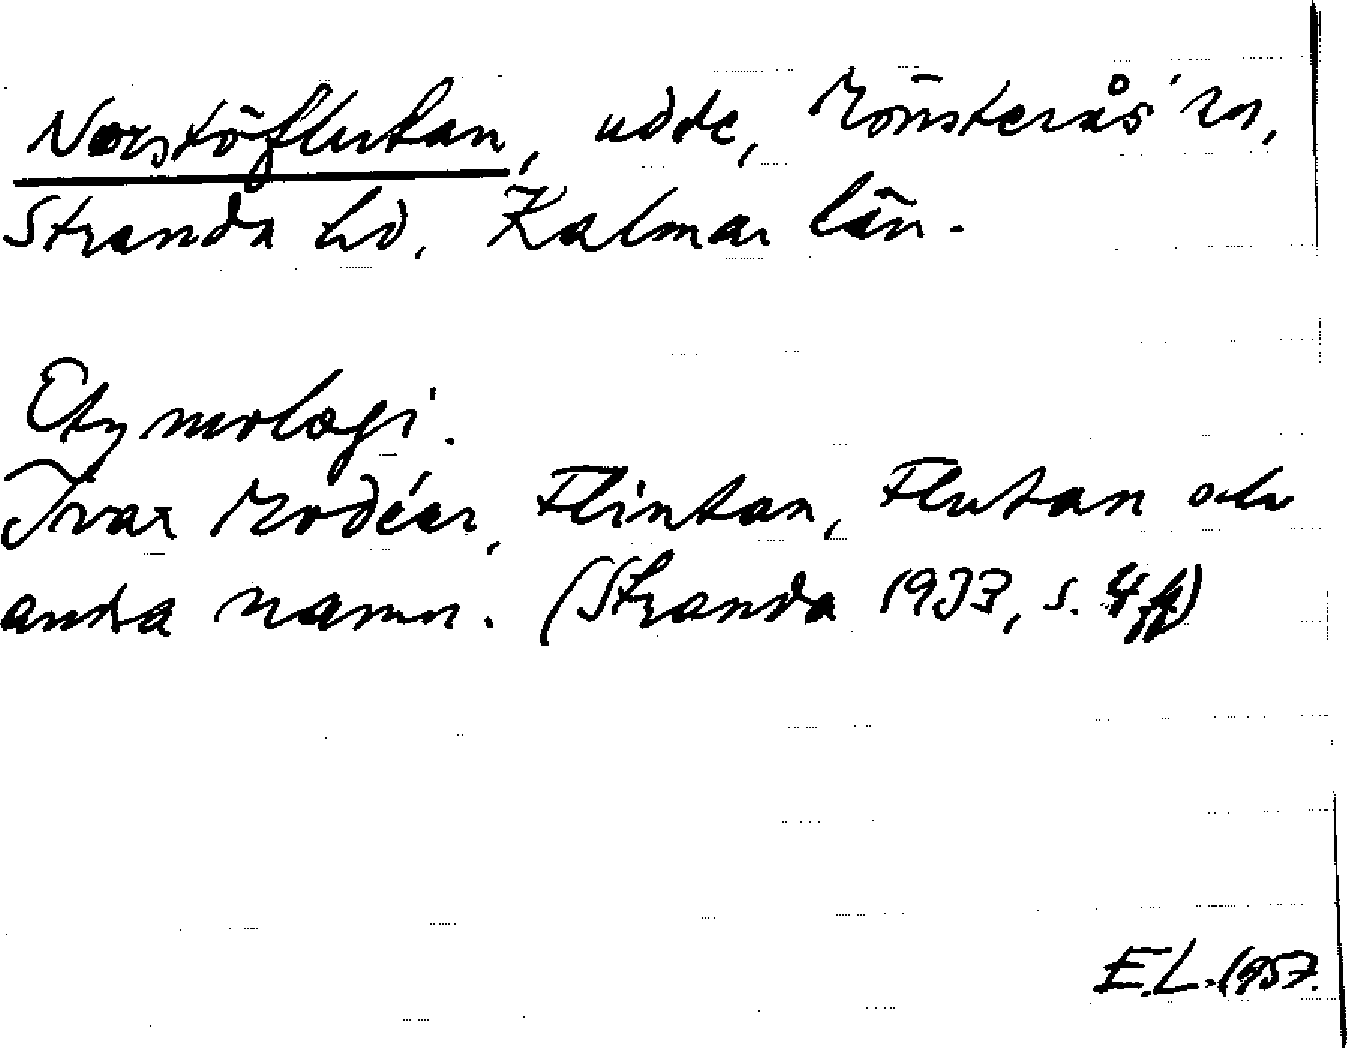 Norstöflutan, udde, Mönsterås sn,
Stranda hd, Kalmar län.
Etymologi.
Ivar Modéer, Flintan, Flutan och
andra namn. (Stranda 1933, s. 4 ff)
E.L. 1957.